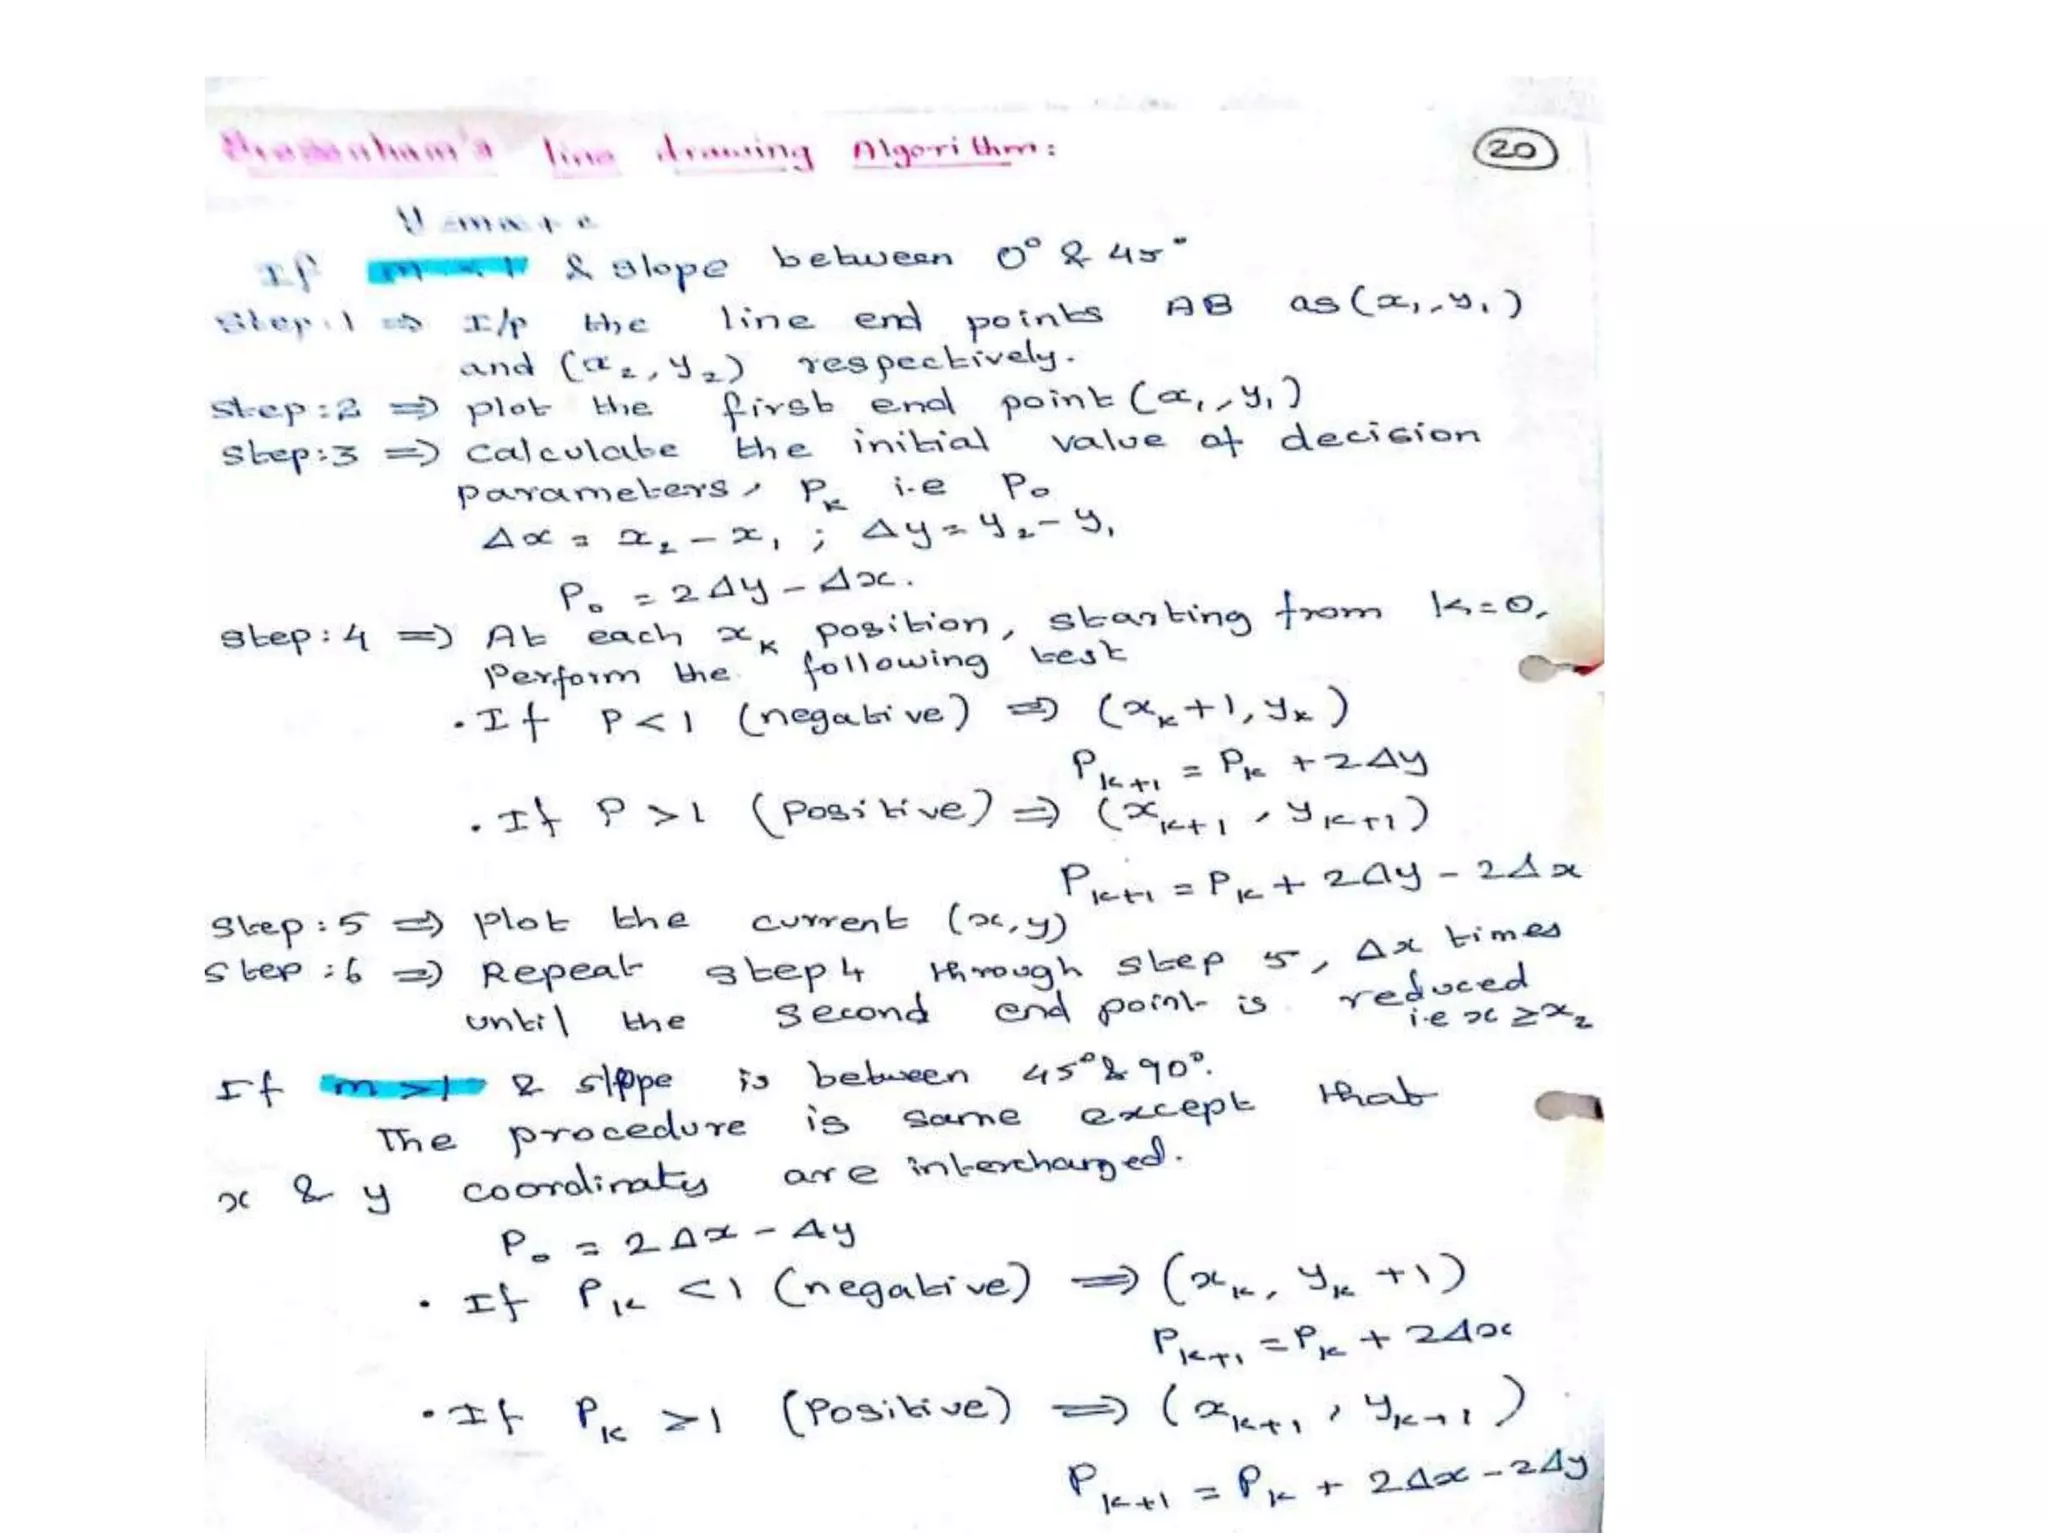 Bresenham's line drawing Algorithm: 20
If m < 1 & slope between 0° & 45°
Step:1 ⇒ I/p the line end points AB as (x₁, y₁)
and (x₂, y₂) respectively.
Step:2 ⇒ plot the first end point (x₁, y₁)
Step:3 ⇒ calculate the initial value of decision
parameters, Pₖ i.e P₀
Δx = x₂ - x₁ ; Δy = y₂ - y₁
P₀ = 2Δy - Δx.
step:4 ⇒ At each xₖ position, starting from k=0,
Perform the following test
• If P < 1 (negative) ⇒ (xₖ+1, yₖ)
Pₖ₊₁ = Pₖ + 2Δy
• If P > 1 (positive) ⇒ (xₖ₊₁, yₖ₊₁)
Pₖ₊₁ = Pₖ + 2Δy - 2Δx
Step:5 ⇒ plot the current (x,y)
Step:6 ⇒ Repeat step 4 through step 5, Δx times
until the second end point is reduced
i.e x ≥ x₂
If m > 1 & slope is between 45° & 90°.
The procedure is same except that
x & y coordinates are interchanged.
P₀ = 2Δx - Δy
• If Pₖ < 1 (negative) ⇒ (xₖ, yₖ +1)
Pₖ₊₁ = Pₖ + 2Δx
• If Pₖ ≥ 1 (Positive) ⇒ (xₖ₊₁, yₖ₊₁)
Pₖ₊₁ = Pₖ + 2Δx - 2Δy